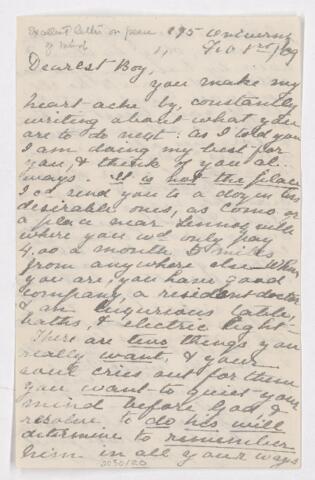 Excellent letter on peace 195 University
of mind Feb 1st /89
Dearest Boy,
you make my
heart-ache by, constantly
writing about what you
are to do next: as I told you
I am doing my best for
you, & think of you al-
ways. It is not the place
I cd send you to a dozen less
desirable ones, as Como or
a place near Lennox
where you wd only pay
4.00 a month 5 miles
from anywhere else. When
you are, you have good
company, a resident doctor
& an luxurious table,
baths, & electric light-
There are two things you
really want, & your
soul cries out for them
you want to quiet your
mind before God &
resolve to do his will
determine to remember
him in all your ways
2030120